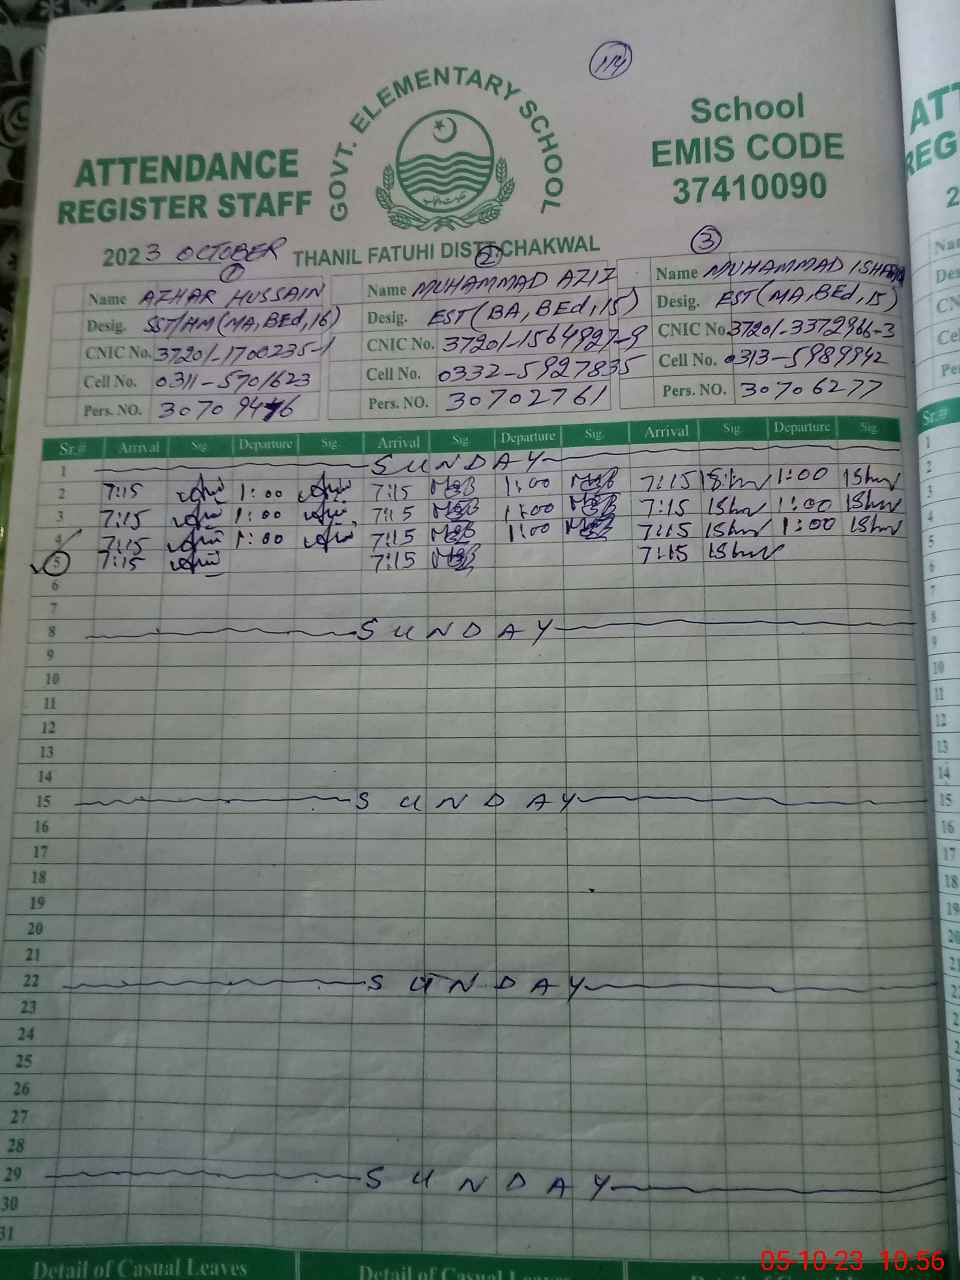 114
GOVT. ELEMENTARY SCHOOL
School
EMIS CODE
37410090
ATTENDANCE
REGISTER STAFF
2023 OCTOBER
THANIL FATUHI DISTT. CHAKWAL
1
Name AZHAR HUSSAIN
Desig. SST/HM (MA, BEd, 16)
CNIC No. 37201-1700235-1
Cell No. 0311-5701623
Pers. NO.
2
Name MUHAMMAD AZIZ
Desig. EST (BA, BEd, 15)
CNIC No. 37201-1564927-9
Cell No. 0332-5927835
Pers. NO. 30702761
3
Name MUHAMMAD
Desig. EST (MA, BEd, 15)
CNIC No. 37201-3372966-3
Cell No. 0313-5989942
Pers. NO. 30706277
Sr.# Arrival Sig. Departure Sig. Arrival Sig. Departure Sig. Arrival Sig. Departure Sig.
1 SUNDAY
2 7:15 1:00 7:15 1:00 7:15 1:00
3 7:15 1:00 7:15 1:00 7:15 1:00
4 7:15 1:00 7:15 1:00 7:15 1:00
5 7:15 7:15 7:15
6
7
8 SUNDAY
9
10
11
12
13
14
15 SUNDAY
16
17
18
19
20
21
22 SUNDAY
23
24
25
26
27
28
29 SUNDAY
30
31
Detail of Casual Leaves
05-10-23 10:56